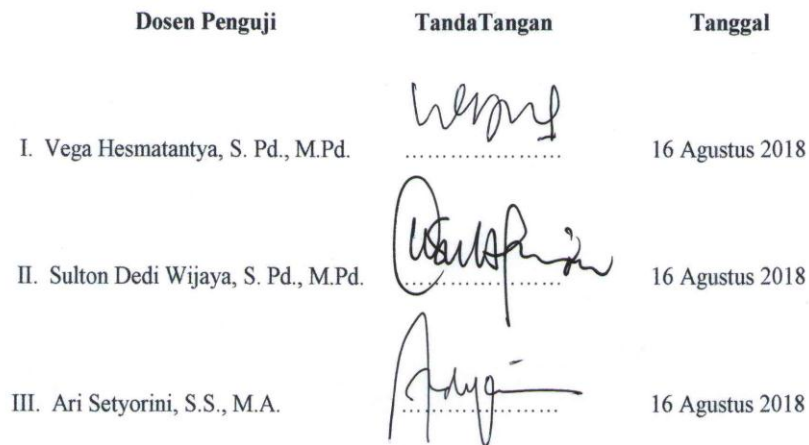 Dosen Penguji TandaTangan Tanggal
I. Vega Hesmatantya, S. Pd., M.Pd. .................... 16 Agustus 2018
II. Sulton Dedi Wijaya, S. Pd., M.Pd. .................... 16 Agustus 2018
III. Ari Setyorini, S.S., M.A. .................... 16 Agustus 2018